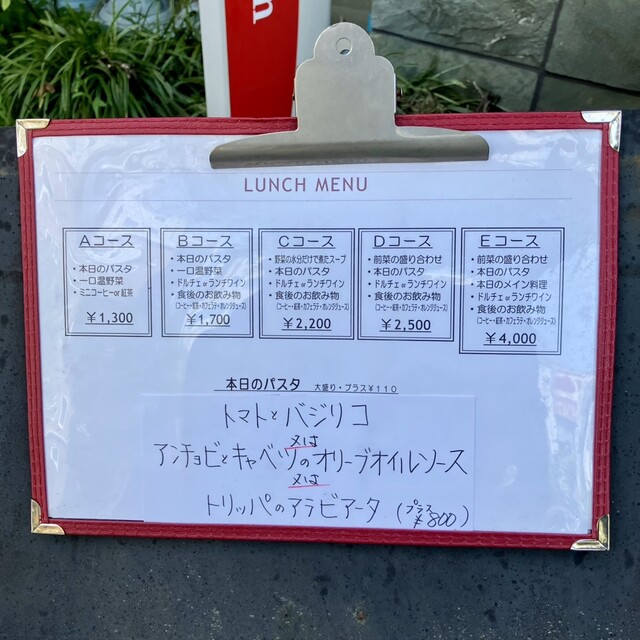 n
LUNCH MENU
Aコース
・本日のパスタ
・一口温野菜
・ミニコーヒーor紅茶
￥1,300
Bコース
・本日のパスタ
・一口温野菜
・ドルチェorランチワイン
・食後のお飲み物
(コーヒー・紅茶・カフェラテ・オレンジジュース)
￥1,700
Cコース
・野菜の水分だけで煮たスープ
・本日のパスタ
・ドルチェorランチワイン
・食後のお飲み物
(コーヒー・紅茶・カフェラテ・オレンジジュース)
￥2,200
Dコース
・前菜の盛り合わせ
・本日のパスタ
・ドルチェorランチワイン
・食後のお飲み物
(コーヒー・紅茶・カフェラテ・オレンジジュース)
￥2,500
Eコース
・前菜の盛り合わせ
・本日のパスタ
・本日のメイン料理
・ドルチェorランチワイン
・食後のお飲み物
(コーヒー・紅茶・カフェラテ・オレンジジュース)
￥4,000
本日のパスタ 大盛り・プラス￥110
トマトとバジリコ
又は
アンチョビとキャベツのオリーブオイルソース
又は
トリッパのアラビアータ (プラス￥800)